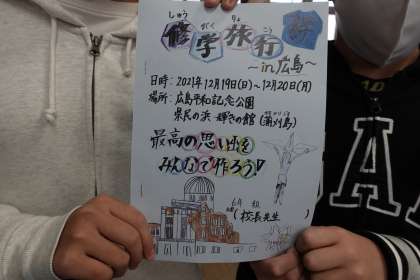 しゅう がく りょ こう
修学旅行
～in 広島～
日時：2021年12月19日(日)～12月20日(月)
場所：広島平和記念公園
県民の浜 輝きの館(蒲刈島)
最高の思い出を
みんなで作ろう!!
6年 組
(校長先生)